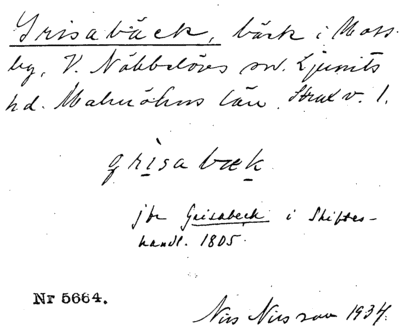 Grisabäck, bäck i Moss-
by, V. Nöbbelövs sn. Ljunits
hd. Malmöhus län. Strax v. 1.
grisabæk
jbr Grisabeck i Skiftes-
handl. 1805.
Nr 5664.
Nils Nilsson 1934.